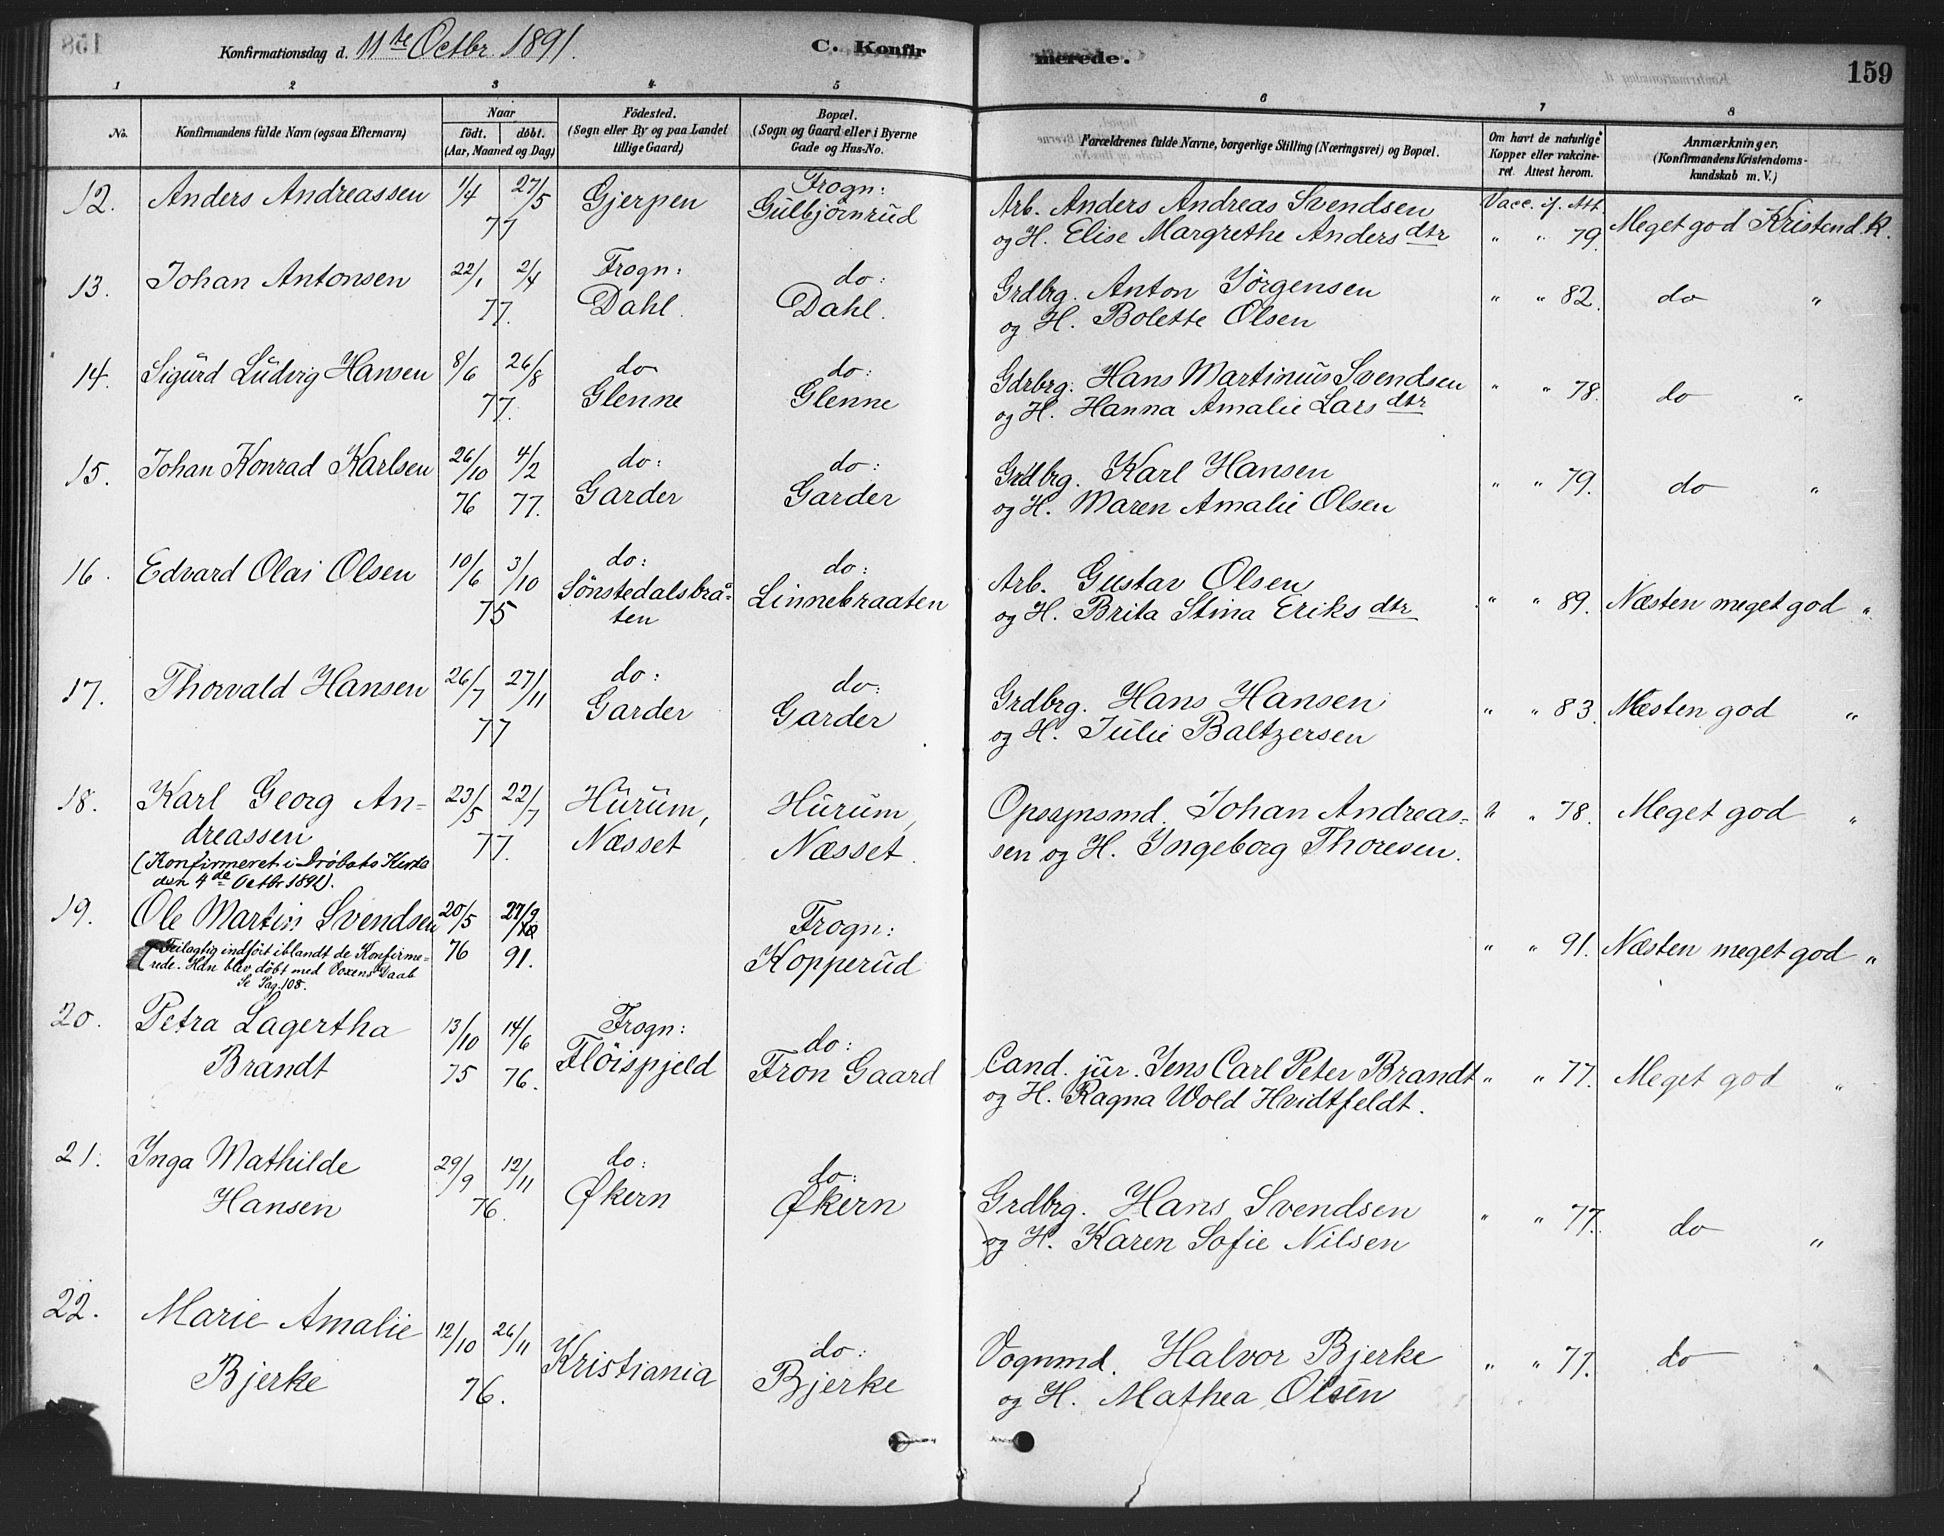 Konfirmationsdag d. 11te Octbr. 1891.
C. Konfirmerede.
159
1 2 3 4 5 6 7 8
No.
Konfirmandens fulde Navn (ogsaa Efternavn)
Naar
födt. döbt.
(Aar, Maaned og Dag)
Födested.
(Sogn eller By og paa Landet
tillige Gaard)
Bopæl.
(Sogn og Gaard eller i Byerne
Gade og Hus-No.
Forældrenes fulde Navne, borgerlige Stilling (Næringsvei) og Bopæl.
Om havt de naturlige
Kopper eller vakcine-
ret. Attest herom.
Anmærkninger.
(Konfirmandens Kristendoms-
kundskab m. V.)
12. Anders Andreassen 1/4 27/5 Gjerpen Frogn: Arb. Anders Andreas Svendsen Vacc. if. Att.
77 Gulbjörnrud og H. Elise Margrethe Anders dtr " " 79. Meget god Kristend.k.
13. Johan Antonsen 22/1 2/4 Frogn: do: Grdbrg. Anton Jörgensen " " 82. do "
77. Dahl. Dahl. og H. Bolette Olsen
14. Sigurd Ludvig Hansen 8/6 26/8 do do: Gdrbrg. Hans Martinius Svendsen " " 78. do "
77. Glenne Glenne og H. Hanna Amalie Lars dtr
15. Johan Konrad Karlsen 26/10 4/2 do: do: Grdbrg. Karl Hansen " " 79. do "
76 77. Garder Garder og H. Maren Amalie Olsen
16. Edvard Olai Olsen 10/6 3/10 do: do: Arb. Gustav Olsen
75 Sönstedalsbrå- Linnebraaten og H. Brita Stina Eriks dtr " " 89. Næsten meget god "
ten
17. Thorvald Hansen 26/7 27/11 do: do: Grdbrg. Hans Hansen " " 83. Næsten god "
77 Garder Garder og H. Julie Baltzersen
18. Karl Georg An- 23/5 22/7 Hurum, Hurum, Opsynsmd. Johan Andreas- " " 78. Meget god "
dreassen 77. Næsset Næsset. sen og H. Ingeborg Thoresen.
(Konfirmeret i Dröbaks Kirke
den 4de Octbr 1891).
19. Ole Martin Svendsen 20/5 27/9 Frogn:
76 91. Kopperud " " 91. Næsten meget god "
(Feilagtig indfört iblandt de Konfirme-
rede. Han blev döbt med Voxens Daab
Se Pag. 108.
20. Petra Lagertha 13/10 14/6 Frogn: do:
Brandt 75 76. Flöispjeld Fron Gaard Cand. jur. Jens Carl Peter Brandt " " 77. Meget god "
og H. Ragna Wold Hvidtfeldt.
21. Inga Mathilde 29/9 12/11 do: do:
Hansen 76. Økern Økern Grdbrg. Hans Svendsen " " 77. do "
og H. Karen Sofie Nilsen
22. Marie Amalie 12/10 26/11 Kristiania do: Vognmd. Halvor Bjerke " " 77. do "
Bjerke 76. Bjerke og H. Mathea Olsen